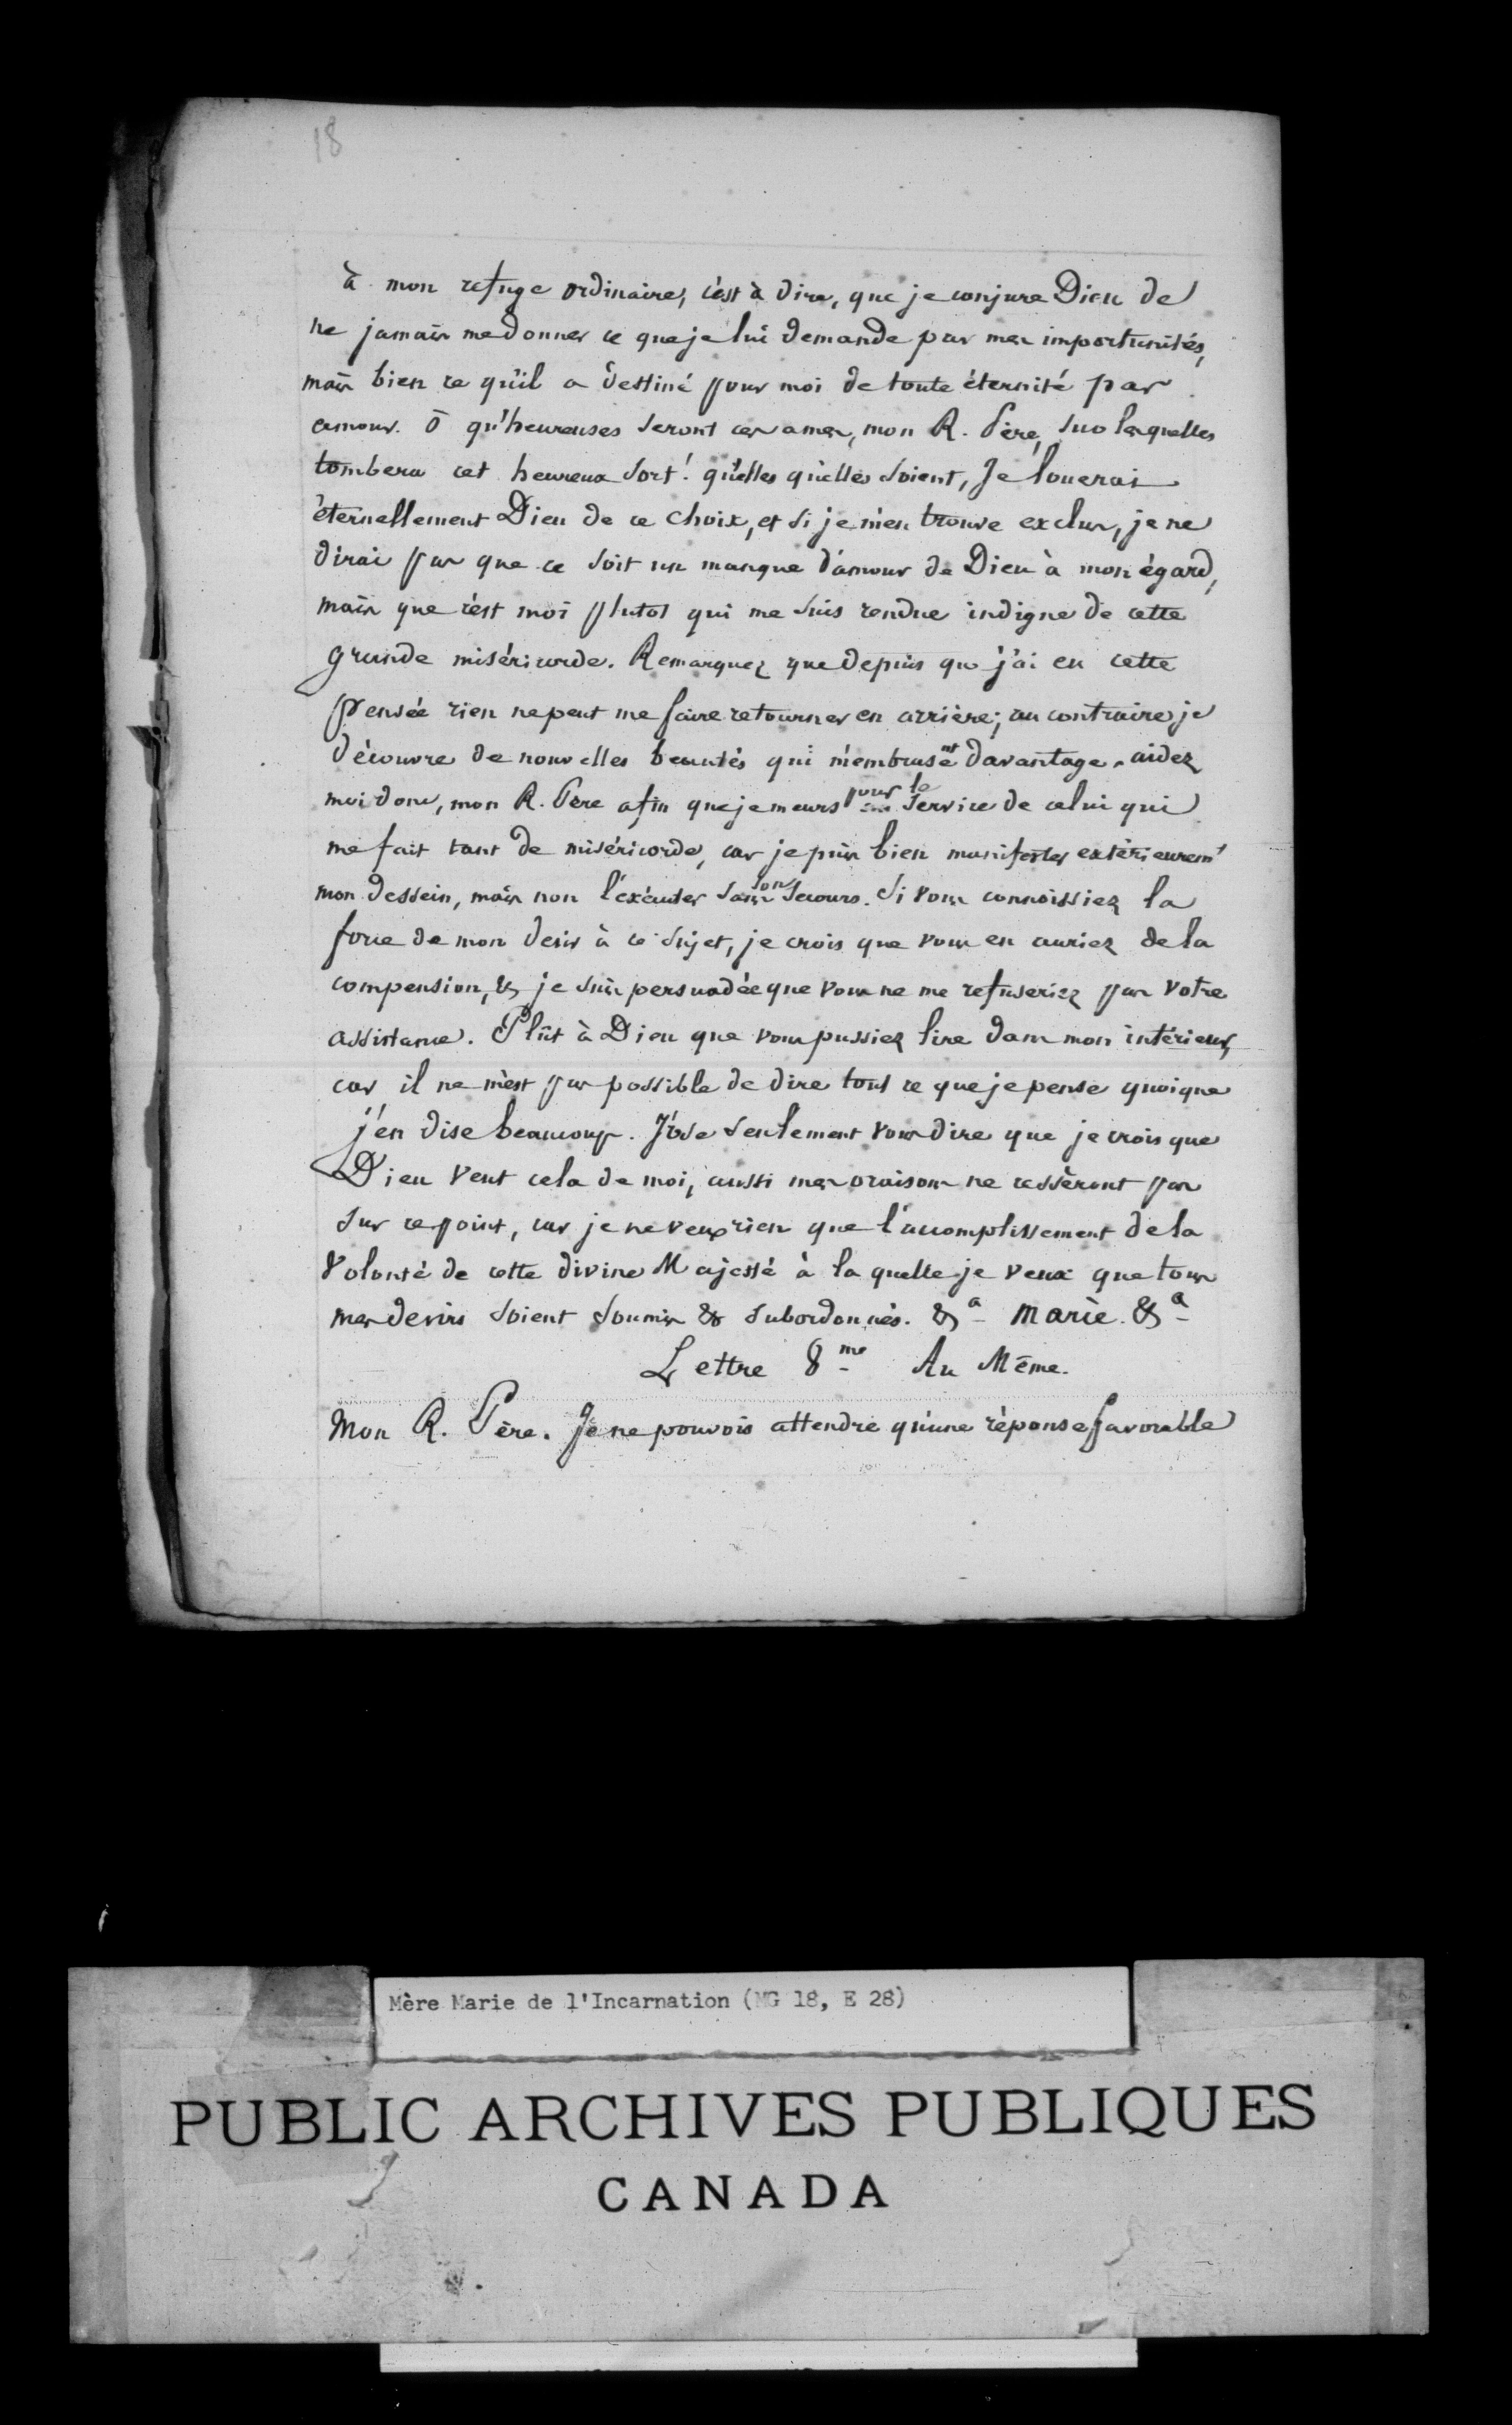 18
à mon refuge ordinaire, c'est à dire, que je conjure Dieu de
ne jamais me donner ce que je lui demande par mes importunités,
mais bien ce qu'il a destiné pour moi de toute éternité par
amour. ô qu'heureuses seront ces ames, mon R. Père, sur lesquelles
tombera cet heureux sort! qu'elles qu'elles soient, Je louerai
éternellement Dieu de ce choix, et si je m'en trouve exclus, je ne
dirai pas que ce soit un manque d'amour de Dieu à mon égard,
mais que c'est moi plutot qui me suis rendue indigne de cette
grande miséricorde. Remarquez que depuis que j'ai eu cette
pensée rien ne peut me faire retourner en arrière; au contraire je
découvre de nouvelles beautés qui m'embrasent davantage. aidez
moi donc, mon R. Père afin que je meurs pour le service de celui qui
me fait tant de miséricorde, car je puis bien manifester extérieurem^t
mon dessein, mais non l'exécuter sans son secours. Si vous connoissiez la
force de mon desir à ce sujet, je crois que vous en auriez de la
compension, & je suis persuadée que vous ne me refuseriez pas votre
assistance. Plût à Dieu que vous pussiez lire dans mon intérieur,
car il ne m'est pas possible de dire tout ce que je pense quoique
j'en dise beaucoup. J'ose seulement vous dire que je crois que
Dieu veut cela de moi, aussi mes oraisons ne cessèront pas
sur ce point, car je ne veux rien que l'accomplissement de la
Volonté de cette divine Majesté à la quelle je veux que tous
mes desirs soient soumis & subordonnés. &^a Marie. &^a
Lettre 8^me Au Même.
Mon R. Père. Je ne pouvois attendre qu'une réponse favorable
Mère Marie de l'Incarnation (MG 18, E 28)
PUBLIC ARCHIVES PUBLIQUES
CANADA